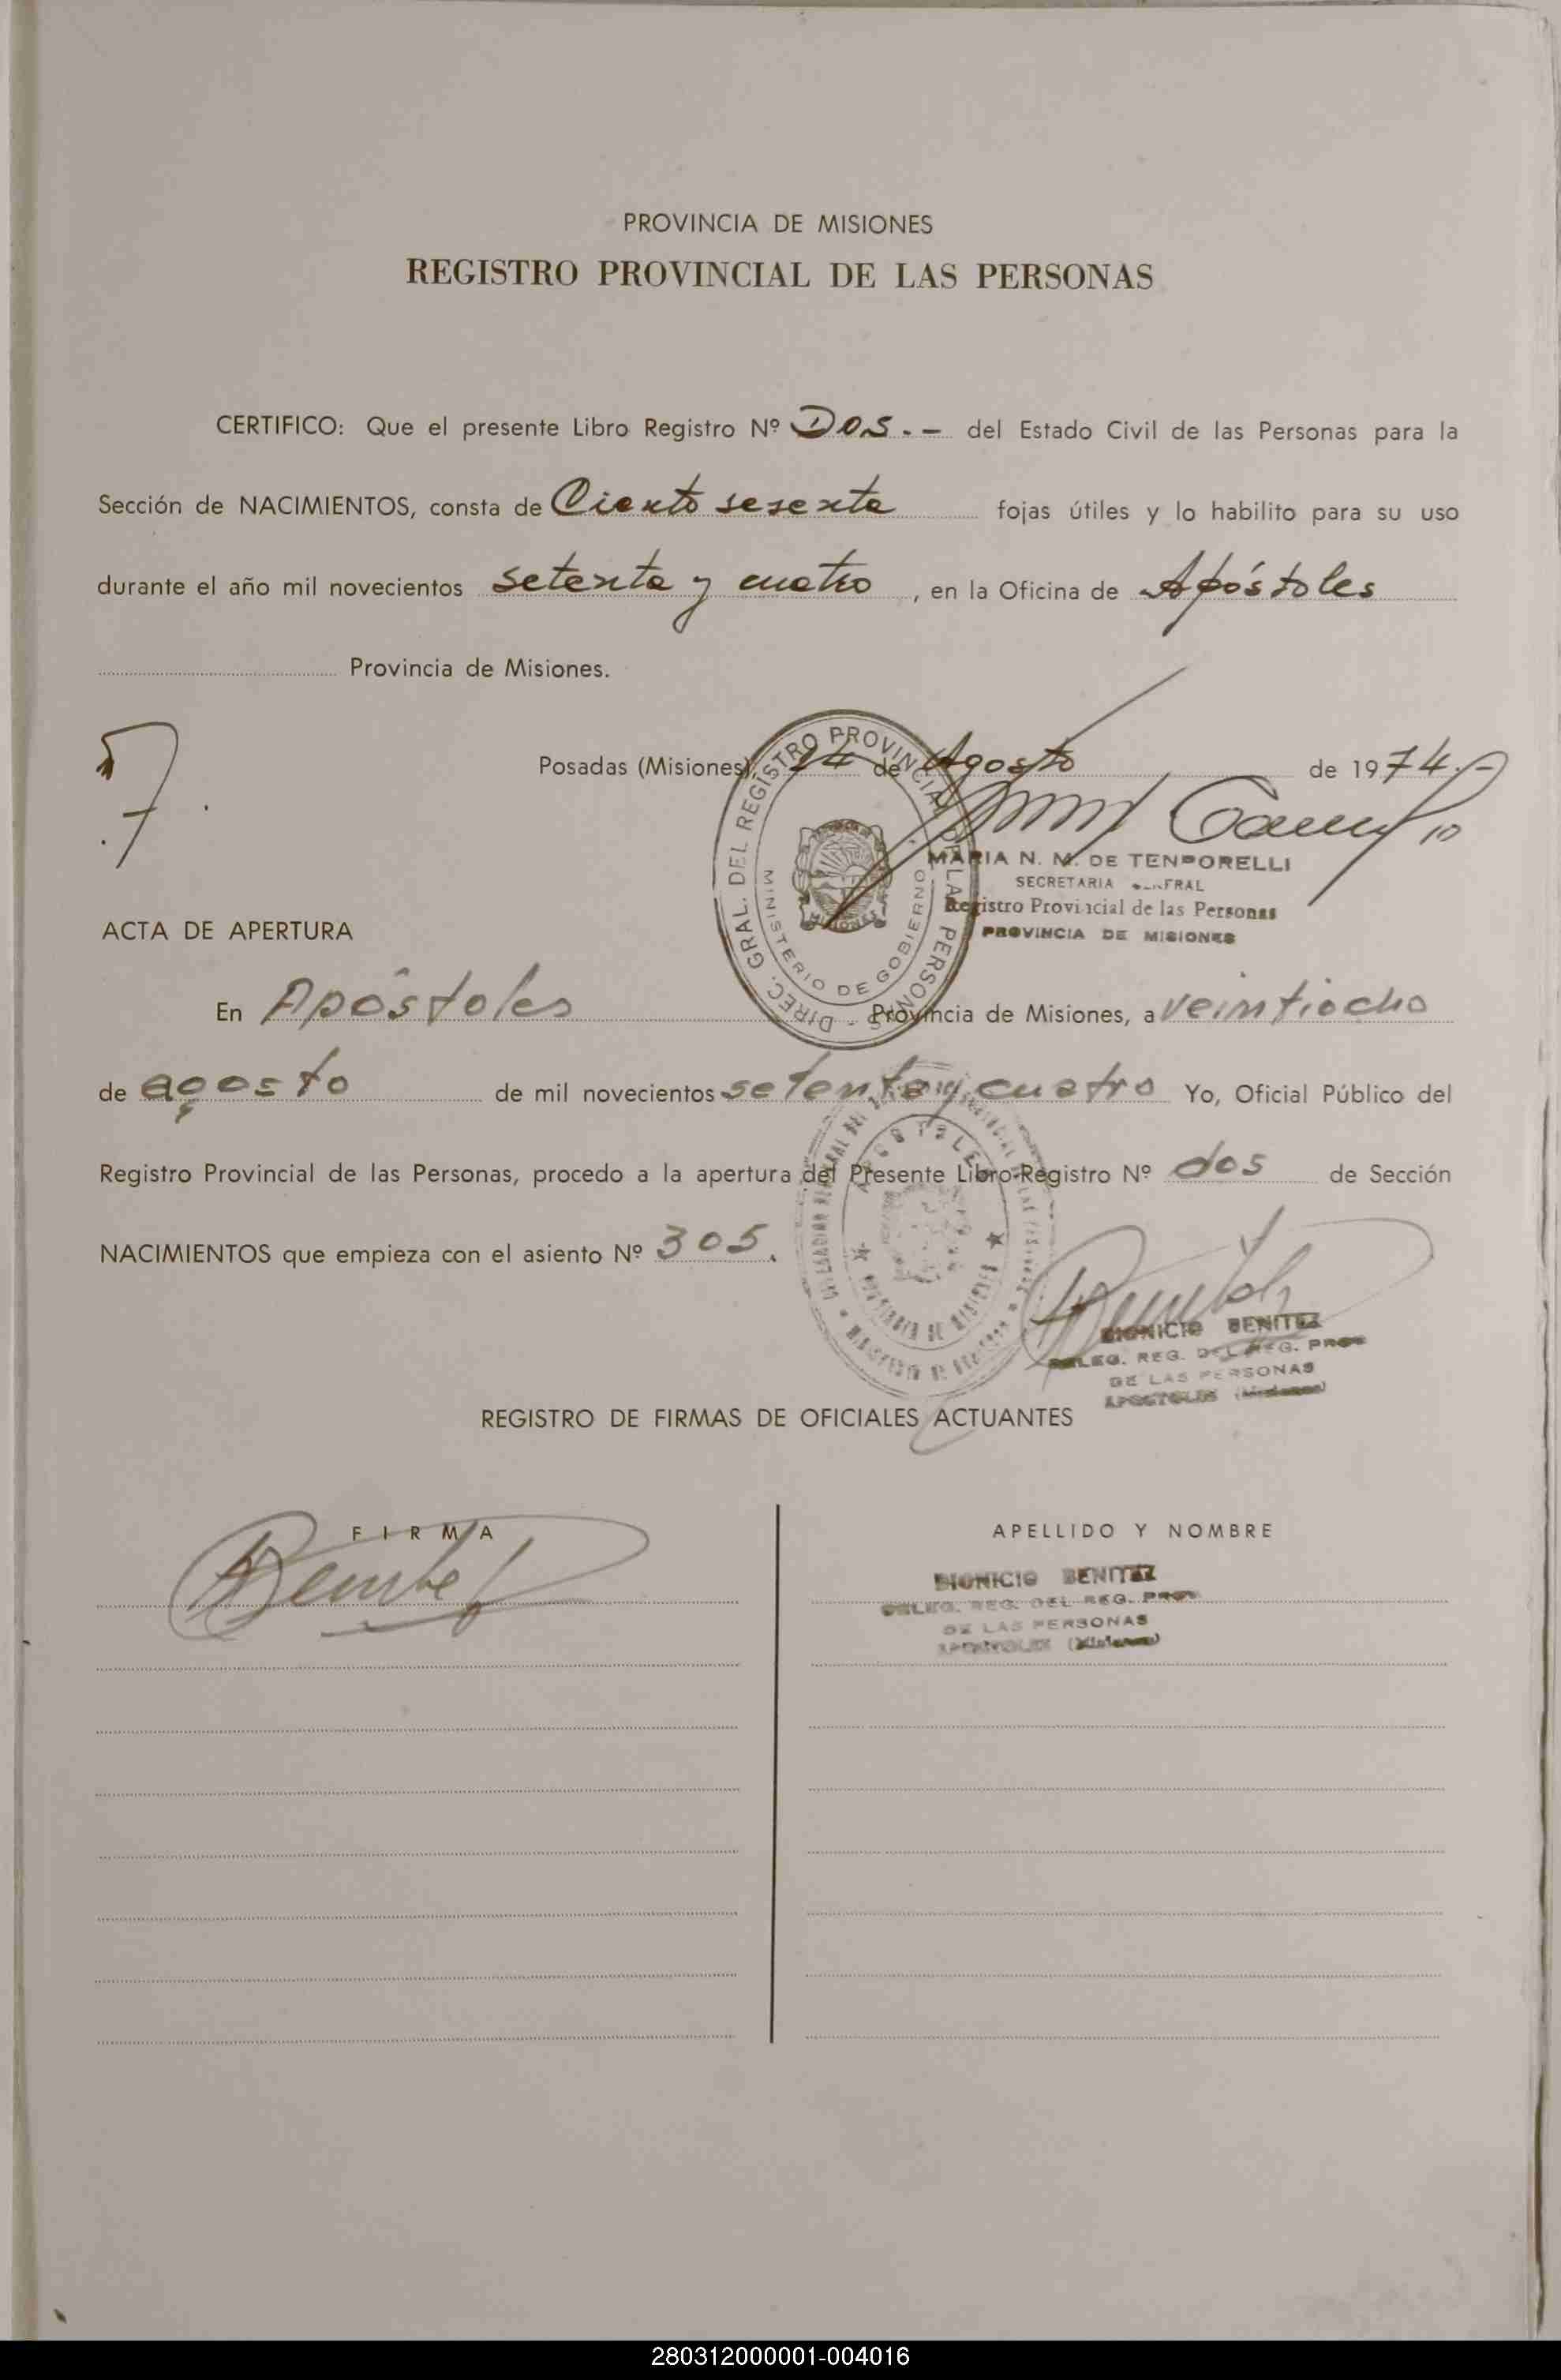 PROVINCIA DE MISIONES
REGISTRO PROVINCIAL DE LAS PERSONAS
CERTIFICO: Que el presente Libro Registro Nº Dos.- del Estado Civil de las Personas para la
Sección de NACIMIENTOS, consta de Ciento sesenta fojas útiles y lo habilito para su uso
durante el año mil novecientos setenta y cuatro, en la Oficina de Apóstoles
Provincia de Misiones.
Posadas (Misiones), 24 de Agosto de 1974.-
DIREC. GRAL. DEL REGISTRO PROVINCIAL DE LAS PERSONAS -
MINISTERIO DE GOBIERNO
MARIA N. M. DE TEMPORELLI
SECRETARIA GENERAL
Registro Provincial de las Personas
PROVINCIA DE MISIONES
ACTA DE APERTURA
En Apóstoles Provincia de Misiones, a veintiocho
de agosto de mil novecientos setenta y cuatro Yo, Oficial Público del
Registro Provincial de las Personas, procedo a la apertura del Presente Libro-Registro Nº dos de Sección
NACIMIENTOS que empieza con el asiento Nº 305.
APOSTOLES
PROVINCIA DE MISIONES
DIONICIO BENITEZ
DELEG. REG. DEL REG. PROV
DE LAS PERSONAS
APOSTOLES (Misiones)
REGISTRO DE FIRMAS DE OFICIALES ACTUANTES
FIRMA
APELLIDO Y NOMBRE
Benitez
DIONICIO BENITEZ
DELEG. REG. DEL REG. PROV
DE LAS PERSONAS
APOSTOLES (Misiones)
280312000001-004016